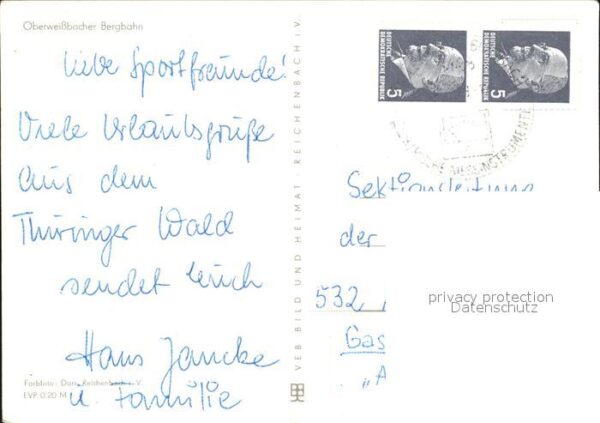 Oberweißbacher Bergbahn
Liebe Sportfreunde!
Viele Urlaubsgrüße
aus dem
Thüringer Wald
sendet Euch
Hans Jancke
u. Familie
Farbfoto: Darr, Reichenbach i. V.
EVP 0.20 M
VEB BILD UND HEIMAT · REICHENBACH i. V.
DEUTSCHE
DEMOKRATISCHE REPUBLIK
5
DEUTSCHE
DEMOKRATISCHE REPUBLIK
5
INSTRUMENTE
Sektionsleitung
der
532
Gas
„A
privacy protection
Datenschutz